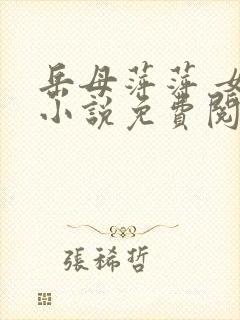 岳母萍萍 女
小說免費閱
張稀哲